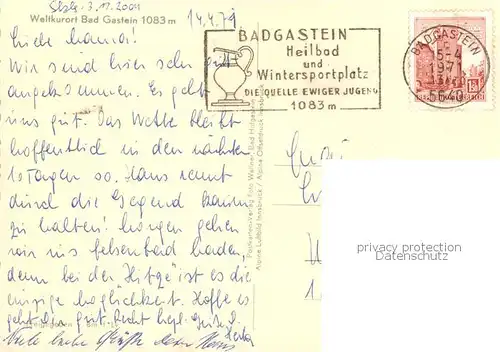 Slzb. 3.11.2001
Weltkurort Bad Gastein 1083 m
14.4.71
Liebe Mama!
Wir sind hier sehr gut
angekommen. Es geht
uns gut. Das Wetter bleibt
hoffentlich in den nächsten
10 Tagen so. Hans rennt
durch die Gegend kaum
zu halten! Morgen gehen
wir ins Felsenbad baden,
denn bei der Hitze ist es die
einzige Möglichkeit. Hoffe es
geht dir gut. Recht herzl. Grüße d.
Herta
Viele liebe Grüße dein Hans
BADGASTEIN
Heilbad
und
Wintersportplatz
DIE QUELLE EWIGER JUGEND
1083 m
BADGASTEIN
1971
5640
Alpine Luftbild Innsbruck / Alpine Offsetdruck Innsbruck
privacy protection
Datenschutz